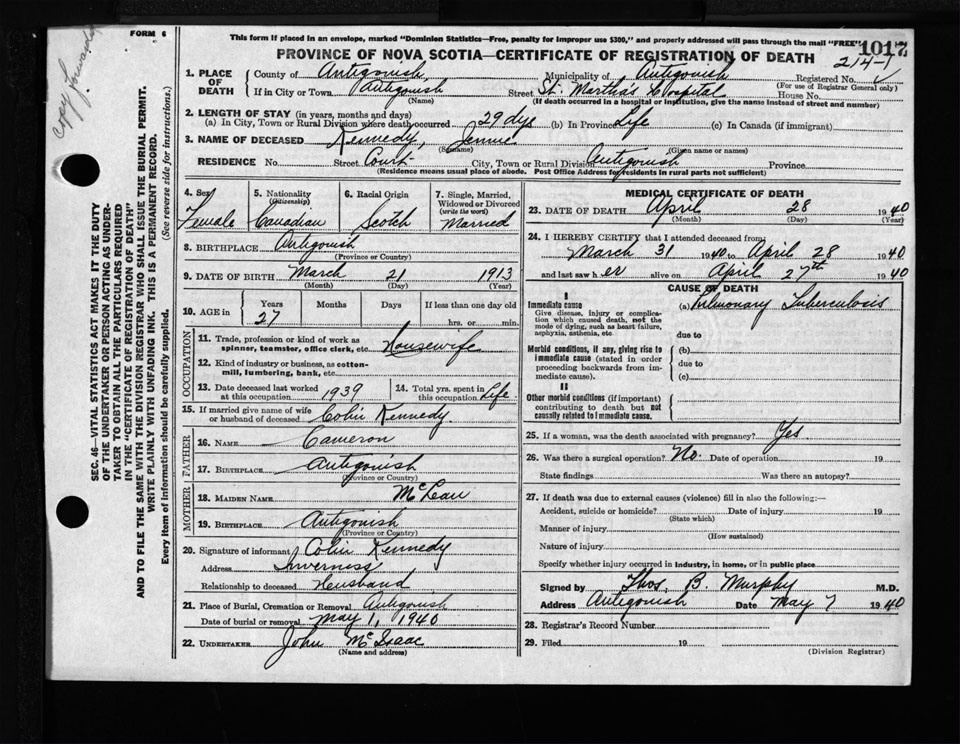 copy forwarded
FORM 6
This form if placed in an envelope, marked "Dominion Statistics—Free, penalty for improper use $300," and properly addressed will pass through the mail "FREE"
1017
PROVINCE OF NOVA SCOTIA—CERTIFICATE OF REGISTRATION OF DEATH
214-1
1. PLACE OF DEATH
County of Antigonish Municipality of Antigonish Registered No.
(For use of Registrar General only)
If in City or Town Antigonish Street St. Martha's Hospital House No.
(Name) (If death occurred in a hospital or institution, give the name instead of street and number)
2. LENGTH OF STAY (in years, months and days)
(a) In City, Town or Rural Division where death occurred 29 dys (b) In Province Life (c) In Canada (if immigrant)
3. NAME OF DECEASED Kennedy, Jennie
(Surname) (Given name or names)
RESIDENCE No. Street Court City, Town or Rural Division Antigonish Province
(Residence means usual place of abode. Post Office Address for residents in rural parts not sufficient)
4. Sex
Female
5. Nationality
(Citizenship)
Canadian
6. Racial Origin
Scotch
7. Single, Married, Widowed or Divorced
(write the word)
Married
8. BIRTHPLACE Antigonish
(Province or Country)
9. DATE OF BIRTH March 21 1913
(Month) (Day) (Year)
10. AGE in
Years Months Days If less than one day old
27 hrs. or min.
OCCUPATION
11. Trade, profession or kind of work as spinner, teamster, office clerk, etc. Housewife
12. Kind of industry or business, as cotton-mill, lumbering, bank, etc.
13. Date deceased last worked at this occupation 1939
14. Total yrs. spent in this occupation Life
15. If married give name of wife or husband of deceased Colin Kennedy
FATHER
16. NAME Cameron
17. BIRTHPLACE Antigonish
(Province or Country)
MOTHER
18. MAIDEN NAME McLean
19. BIRTHPLACE Antigonish
(Province or Country)
20. Signature of informant Colin Kennedy
Address Inverness
Relationship to deceased Husband
21. Place of Burial, Cremation or Removal Antigonish
Date of burial or removal May 1, 1940
22. UNDERTAKER John McIsaac
(Name and address)
MEDICAL CERTIFICATE OF DEATH
23. DATE OF DEATH April 28 1940
(Month) (Day) (Year)
24. I HEREBY CERTIFY that I attended deceased from
March 31 1940 to April 28 1940
and last saw her alive on April 27th 1940
CAUSE OF DEATH
I
Immediate cause
Give disease, injury or complication which caused death, not the mode of dying, such as heart failure, asphyxia, asthenia, etc.
(a) Pulmonary Tuberculosis
due to
Morbid conditions, if any, giving rise to immediate cause (stated in order proceeding backwards from immediate cause).
(b)
due to
(c)
II
Other morbid conditions (if important) contributing to death but not causally related to immediate cause.
25. If a woman, was the death associated with pregnancy? Yes
26. Was there a surgical operation? No. Date of operation 19
State findings Was there an autopsy?
27. If death was due to external causes (violence) fill in also the following:—
Accident, suicide or homicide? Date of injury 19
(State which)
Manner of injury
(How sustained)
Nature of injury
Specify whether injury occurred in industry, in home, or in public place
Signed by Thos. B. Murphy M.D.
Address Antigonish Date May 7 1940
28. Registrar's Record Number
29. Filed 19
(Division Registrar)
SEC. 46—VITAL STATISTICS ACT MAKES IT THE DUTY
OF THE UNDERTAKER OR PERSON ACTING AS UNDER-
TAKER TO OBTAIN ALL THE PARTICULARS REQUIRED
IN THE "CERTIFICATE OF REGISTRATION OF DEATH"
AND TO FILE THE SAME WITH THE DIVISION REGISTRAR WHO SHALL ISSUE THE BURIAL PERMIT.
WRITE PLAINLY WITH UNFADING INK. THIS IS A PERMANENT RECORD.
Every item of information should be carefully supplied. (See reverse side for instructions.)